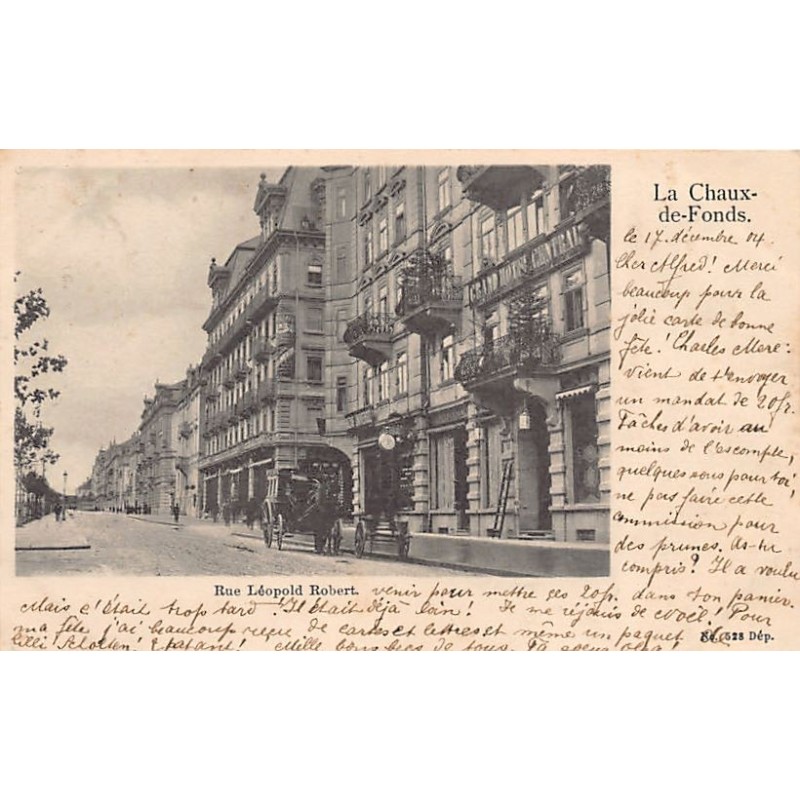 La Chaux-
de-Fonds.
le 17. décembre 04.
Cher Alfred! Merci
beaucoup pour la
jolie carte de bonne
fête! Charles Mère:
vient de t'envoyer
un mandat de 20 fr.
Tâches d'avoir au
moins de l'escompte,
quelques sous pour toi
ne pas faire cette
commission pour
des prunes. As-tu
compris? Il a voulu
GRAND HOTEL CENTRAL
Rue Léopold Robert.
venir pour mettre ses 20 fr. dans son panier.
Mais c'était trop tard! Il était déjà loin! Je me réjouis de Noël! Pour
ma fête j'ai beaucoup reçu de cartes et lettres et même un paquet de
528 Dép.
Lilli! Epatant! Mille bons becs de tous.